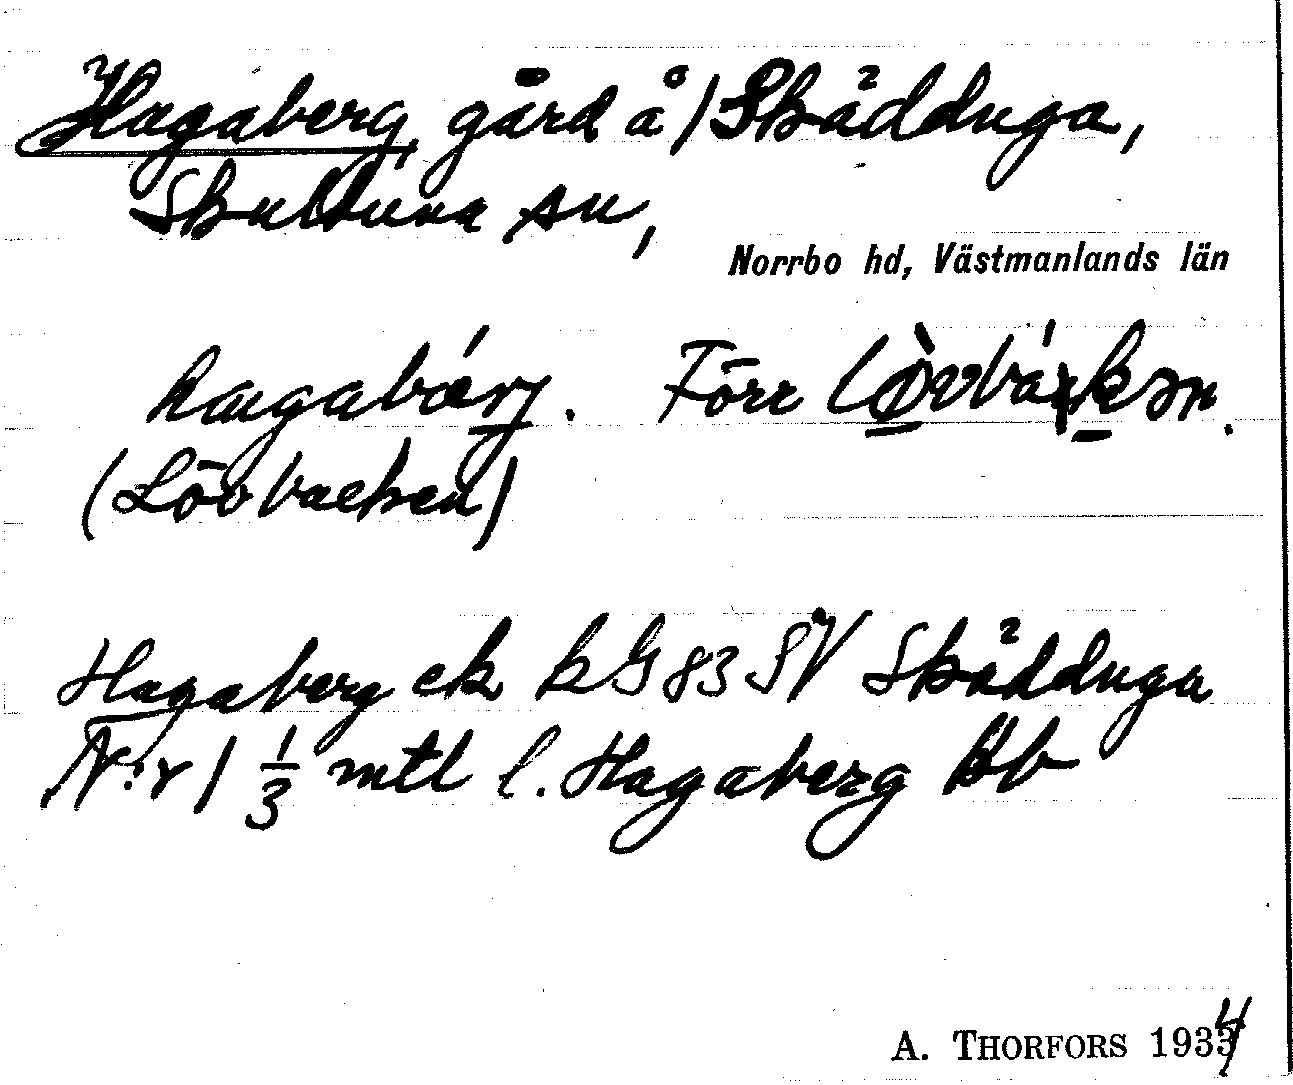 Hagaberg gård å 1 Skådduga,
Skultuna sn,
Norrbo hd, Västmanlands län
Förr
(Lövbacken)
Hagaberg ek kG 83 SV Skådduga
N:r 1 1/3 mtl l. Hagaberg
A. THORFORS 1934